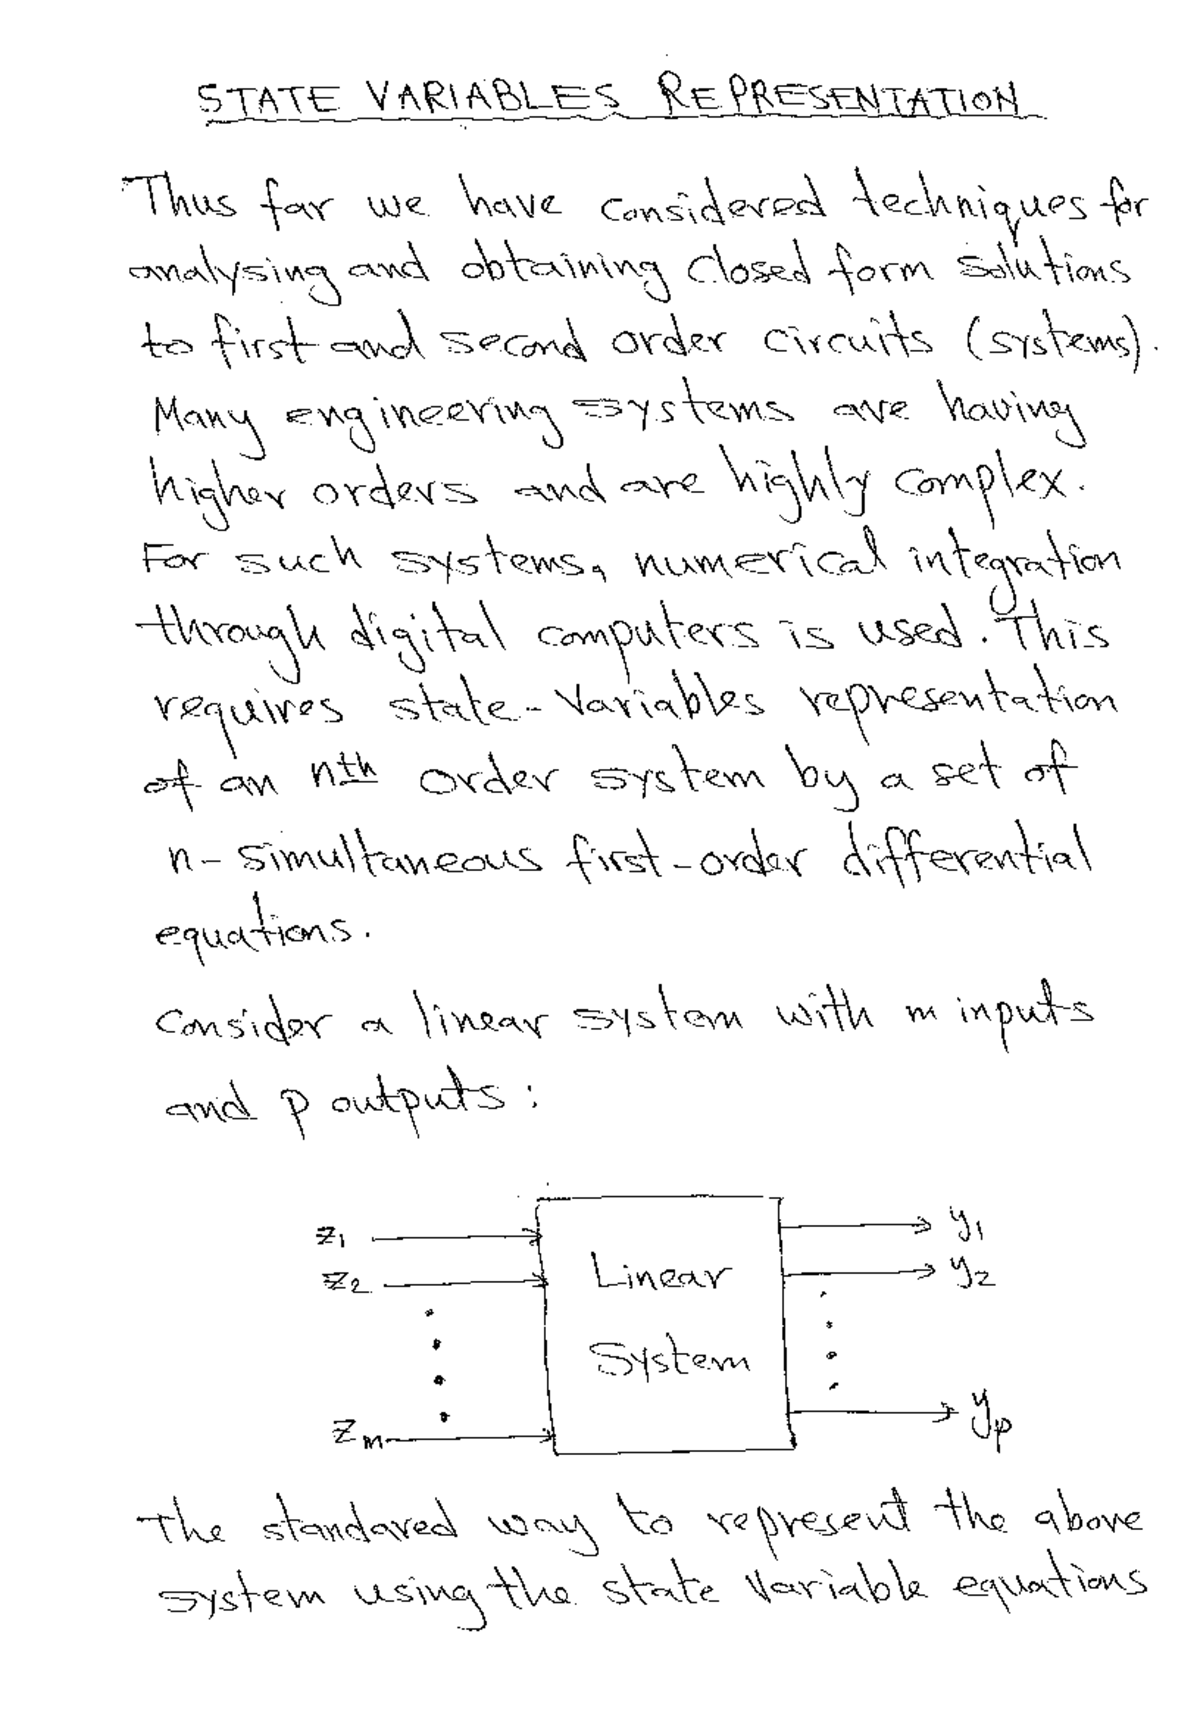 STATE VARIABLES REPRESENTATION
Thus far we have considered techniques for
analysing and obtaining closed form solutions
to first and second order circuits (systems).
Many engineering systems are having
higher orders and are highly complex.
For such systems, numerical integration
through digital computers is used. This
requires state-variables representation
of an nth order system by a set of
n-simultaneous first-order differential
equations.
Consider a linear system with m inputs
and p outputs:
z1
y1
z2
Linear
y2
System
zm
yp
The standared way to represent the above
system using the state variable equations